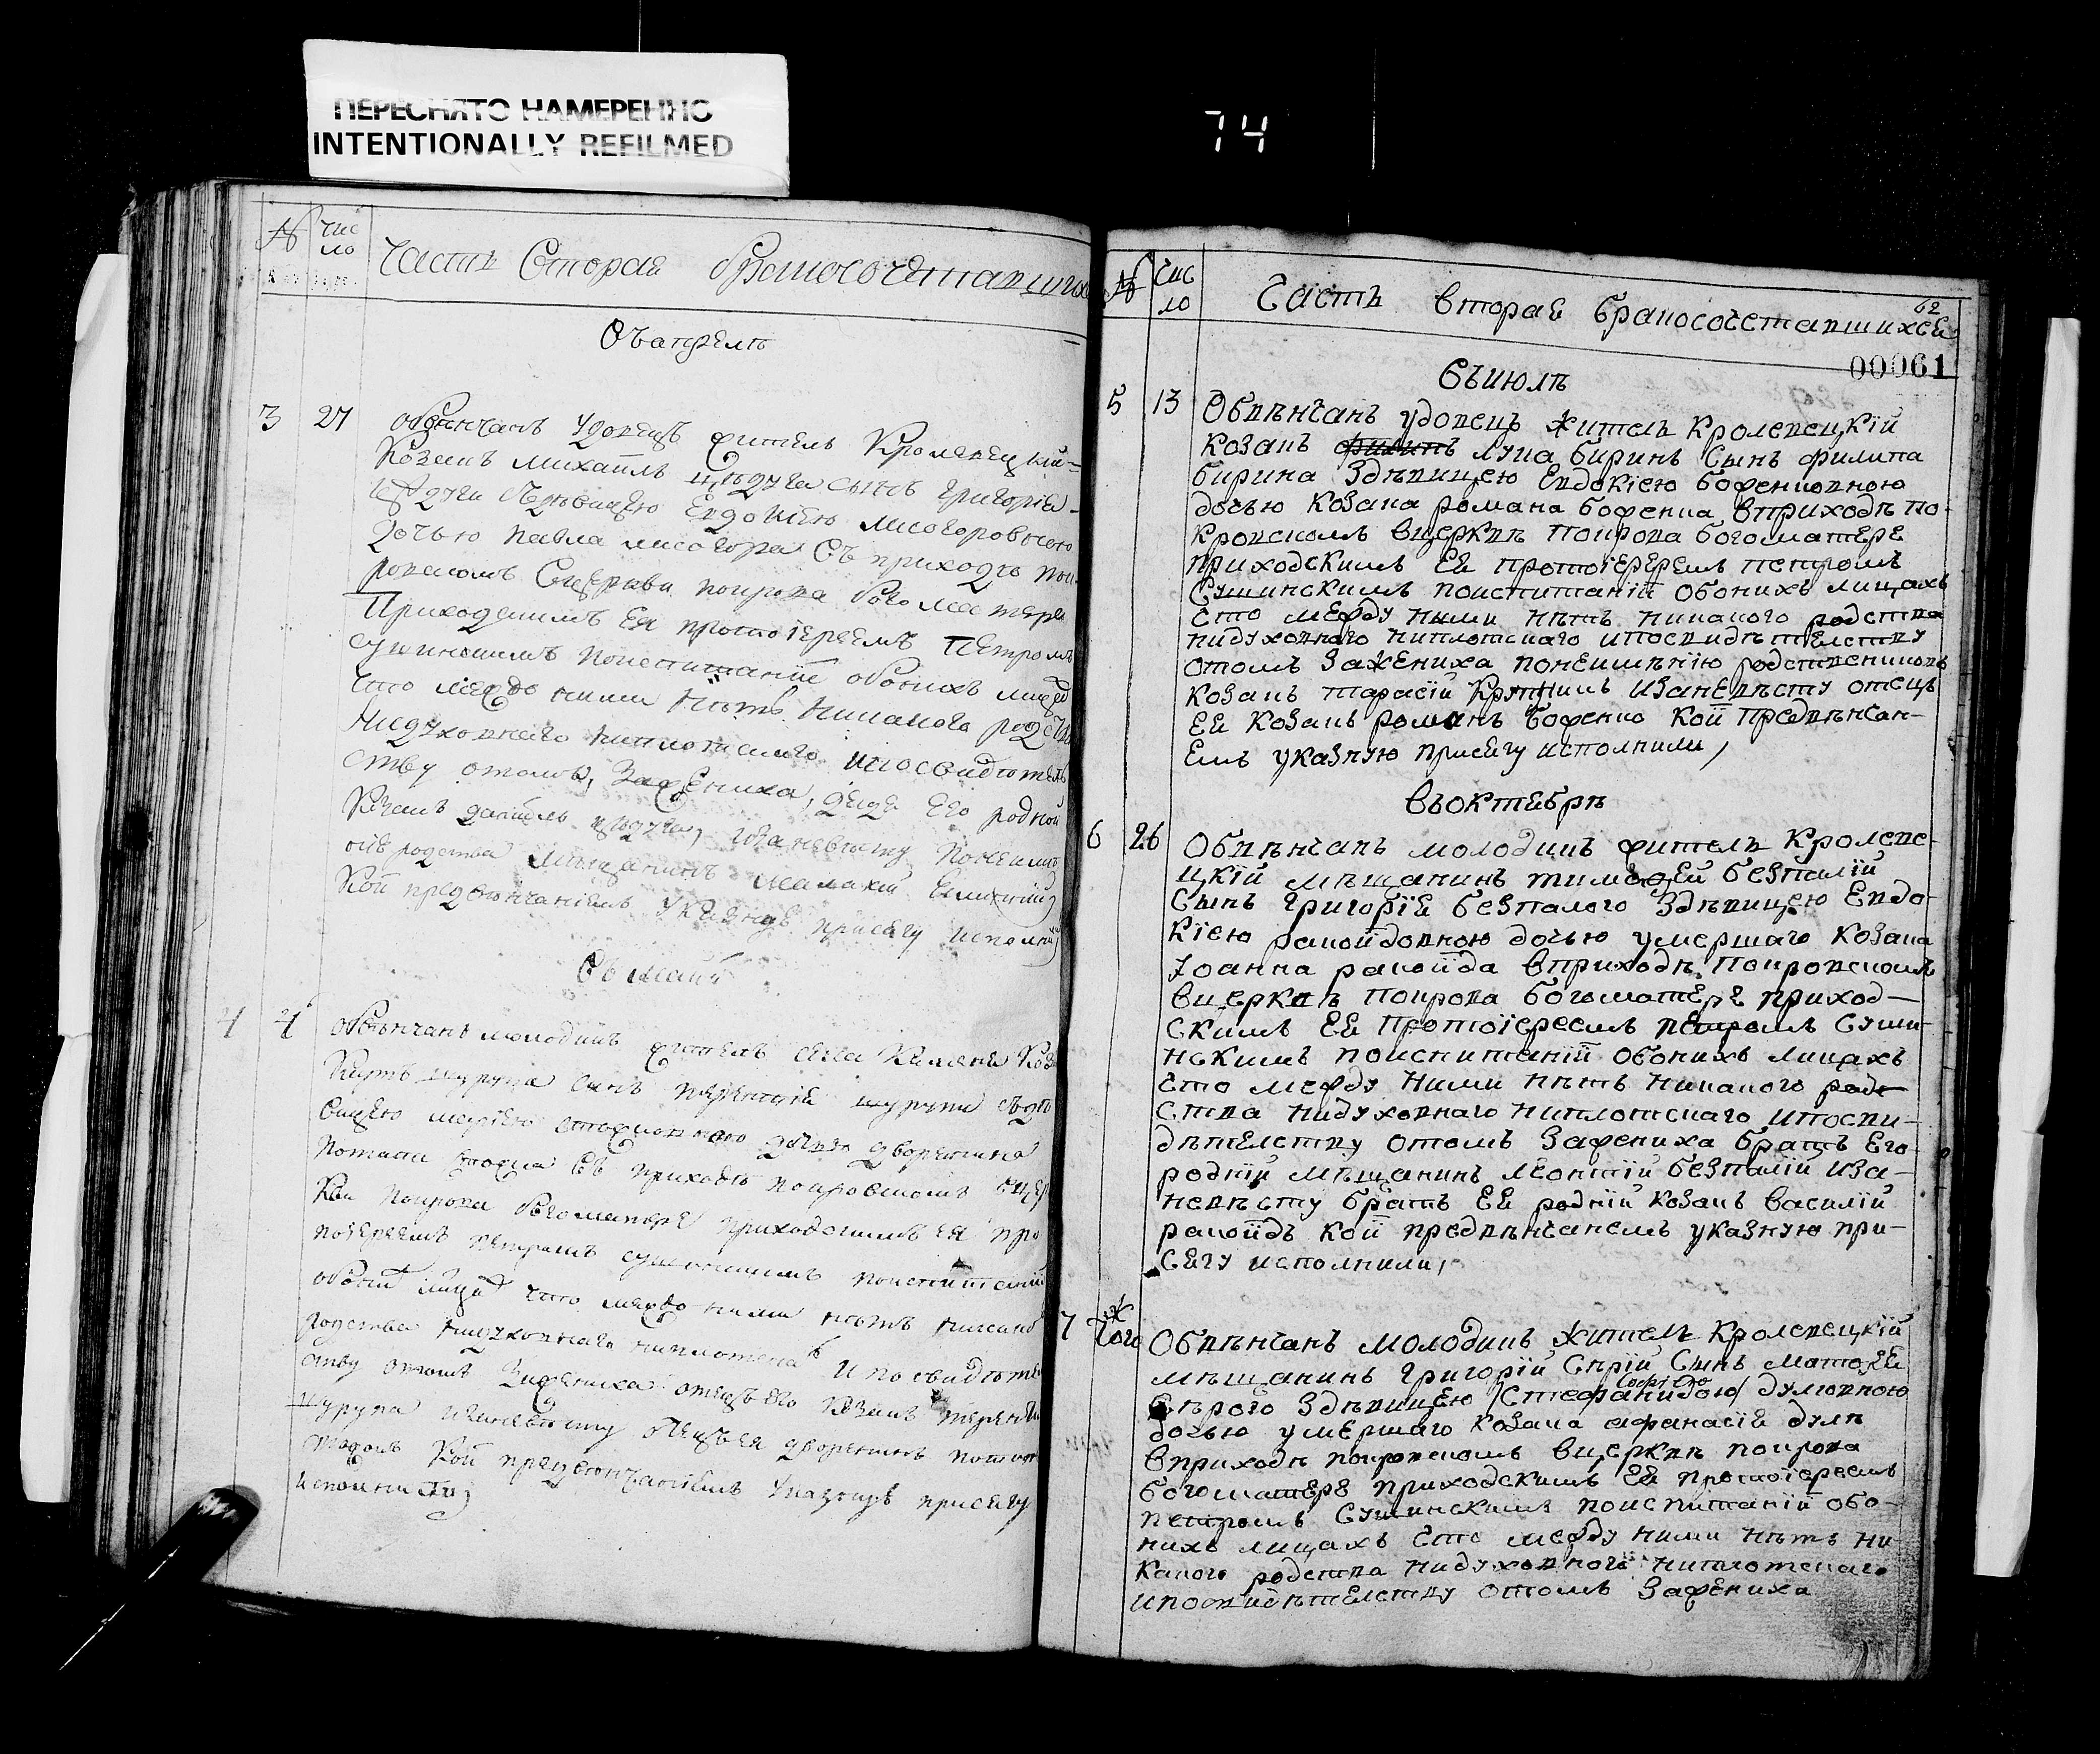 ПЕРЕСНЯТО НАМЕРЕННО
INTENTIONALLY REFILMED
74
№ Чис
ло
Часть Вторая бракосочетавших
Въ апрелѣ
3 27 обвѣнчанъ удовецъ житель Кролевецкій
Козакъ Михаилъ Цѣдуга сынъ Григорія
Цѣдуги Здѣвицею Евдокіею Лисогоровною
дочью Павла Лисогора Въ приходѣ пок
ровскомъ Вцеркви покрова богоматере
Приходскимъ Ея протоіереемъ Петромъ
Сушинскимъ поиспитаніи обоихъ лицъ
что между ними нѣтъ никакого родства
нидуховнаго ниплотскаго ипосвидѣтель
ству отомъ, Зажениха, дядя Его родной
Козакъ Даніилъ Цѣдуга, изаневѣсту понеимѣ
нію родства мѣщанинъ
Кои предвѣнчаніемъ указную присягу исполнили
Въ маіи
4 4 обвѣнчанъ молодикъ житель села Камена Коза
шурупа синъ Терентія шурупи Здѣ
вицею дочью дворянина
Потапа Въ приходѣ покровскомъ вцер
Кви покрова богоматере приходскимъ ея про
тоіереемъ петромъ сушинскимъ поиспитаніи
обоихъ лицъ что между ними нѣтъ никако
родства нидуховнаго ниплотска И посвидѣтел
ству отомъ Зажениха отецъ его Козакъ Терентій
шурупа изаневѣсту отецъ ея дворянинъ потап
Кои предвѣнчаніемъ указную присягу
исполнили
№ Чис
ло
Часть вторая бракосочетавшихся
62
00061
Въ июлѣ
5 13 Обвѣнчанъ удовецъ житель Кролевецкій
Козакъ Лука биринъ Сынъ филипа
бирина Здѣвицею Евдокіею боженковною
дочью Козака романа боженка вприходѣ по-
кровскомъ вцерквѣ покрова богоматере
приходскимъ Ея протоіереремъ петромъ
Сушинскимъ поиспитаніи обоихъ лицахъ
Сто между ними нѣтъ никакого родства
нидуховнаго ниплотскаго ипосвидѣтелству
отомъ зажениха понеимѣнію родствениковъ
козакъ тарасій изаневѣсту отецъ
Ея козакъ романъ боженко кои предвѣнчан-
емъ указную присягу исполнили,
Въ октебрѣ
6 26 Обвѣнчанъ молодикъ житель Кролеве-
цкій мѣщанинъ тимофей безпалій
Сынъ Григорія безпалого Здѣвицею Евдо-
кіею ракоидовною дочью умершаго козака
Іоанна ракоида вприходѣ покровскомъ
вцерквѣ покрова богоматере приход-
скимъ Ея протоіереемъ петромъ Суши-
нскимъ поиспитаніи обоихъ лицахъ
Сто между ними нѣтъ никакого род-
ства нидуховнаго ниплотскаго ипосви-
дѣтелству отомъ зажениха братъ Его
родній мѣщанинъ леонтій безпалій иза-
невѣсту братъ Ея родній козакъ василій
ракоидъ кои предвѣнчанемъ указную при-
сягу исполнили,
7 Того ж Обвѣнчанъ молодикъ житель Кролевецкій
мѣщанинъ Григорій Сѣрій Сынъ матфея
Сѣрого Здѣвицею (Стефанидою) думовною
дочью умершаго козака афанасія думи
вприходѣ покровскомъ вцерквѣ покрова
богоматере приходскимъ Ея протоіереемъ
петромъ Сушинскимъ поиспитаніи обо-
ихъ лицахъ Сто между ними нѣтъ ни
какого родства нидуховного ниплотскаго
ипосвидѣтелству отомъ Зажениха